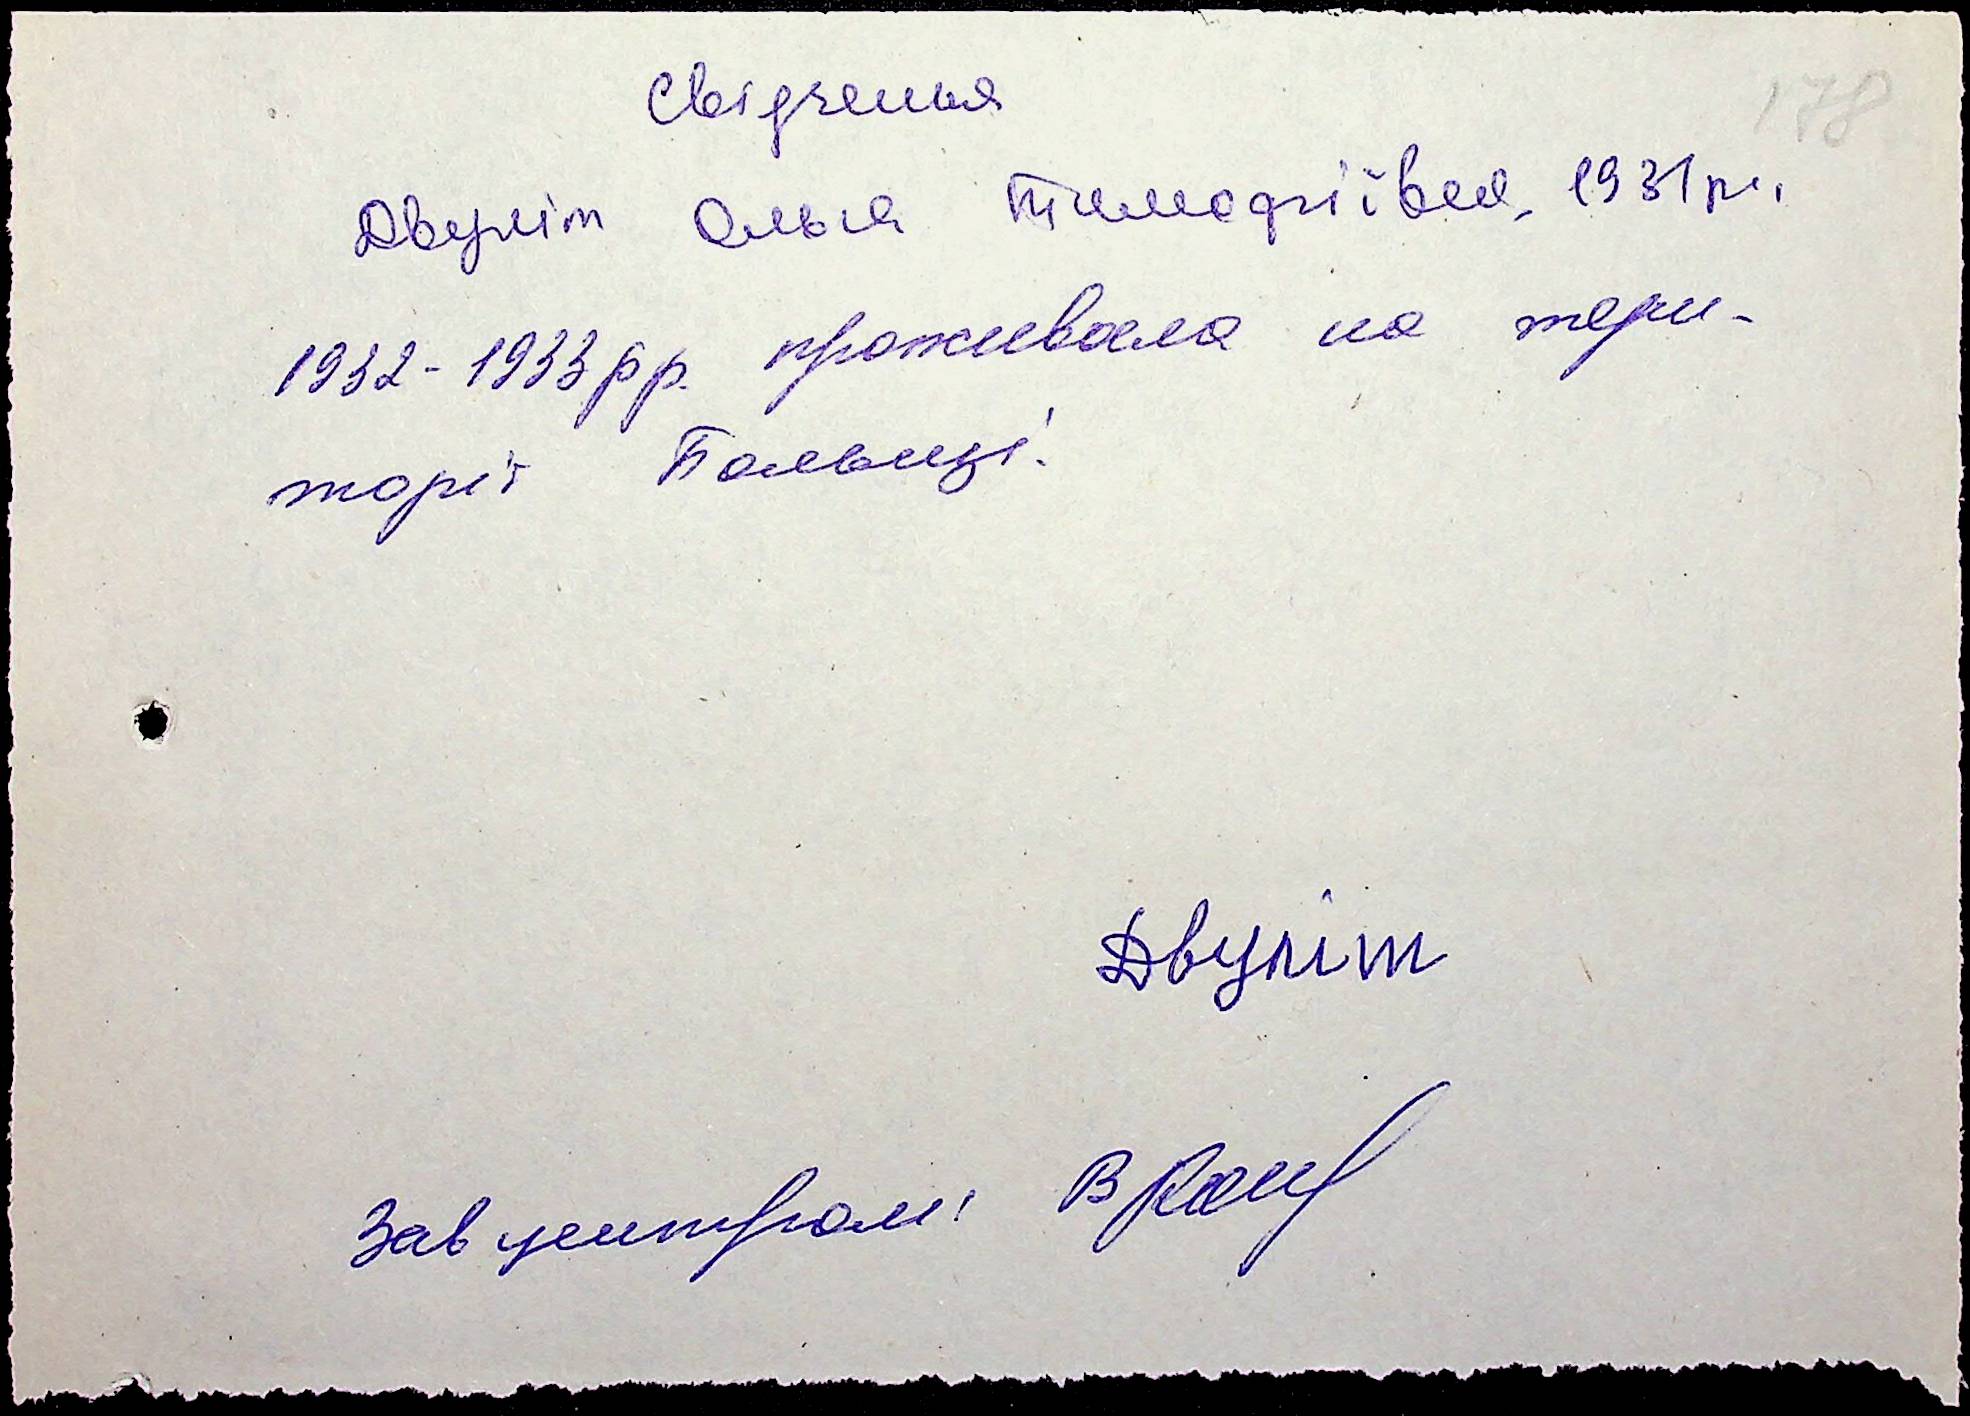 178
Свідчення
Двуліт Ольга Тимофіївна, 1931 р.н.
1932-1933 рр. проживала на тери-
торії Польщі.
Двуліт
Зав центром: